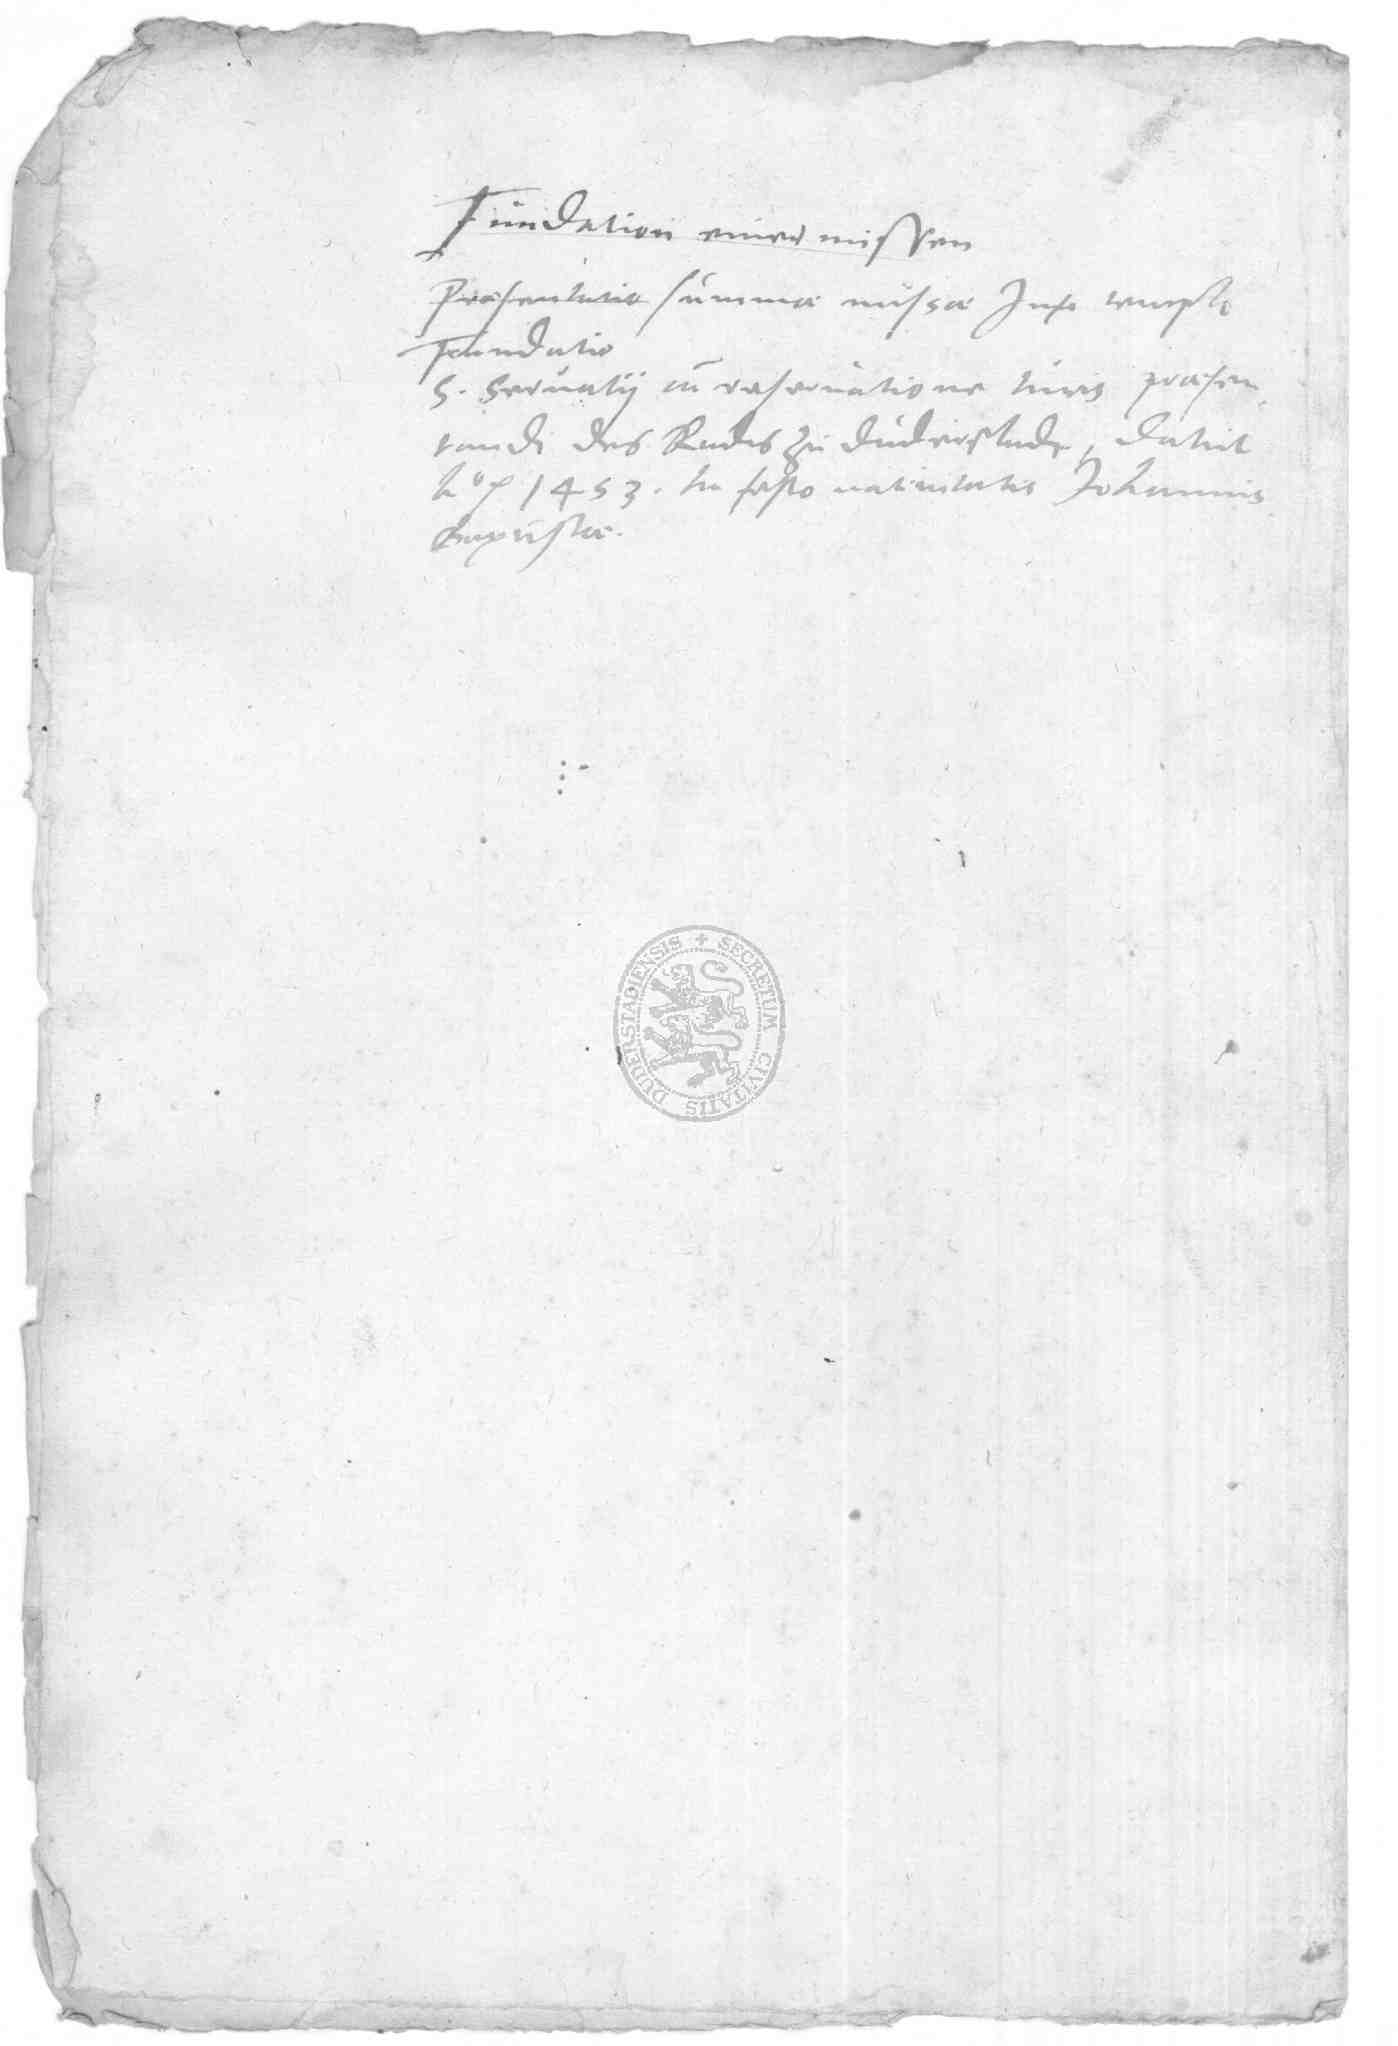 Fundation einer missen
Præsentatio summæ missæ Inn templi
Fundatio
S. Servatij cū reservatione iuris præsen
tandi des Radis zu Duderstadt, datiert
1453. In festo nativitatis Johannis
Baptistæ.
SECRETUM CIVITATIS DUDERSTADIENSIS